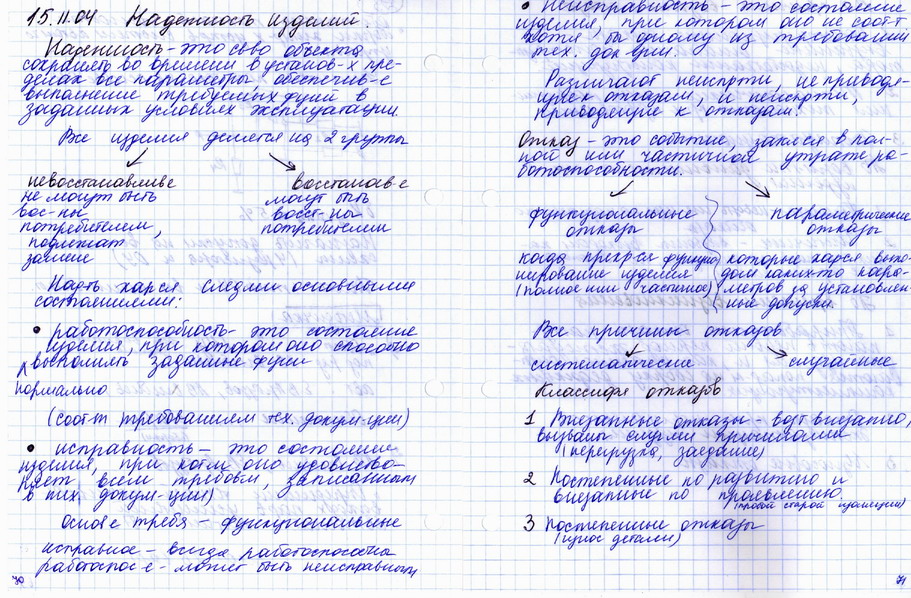 15.11.04 Надежность изделий.
Надежность – это сво объекта
сохранять во времени в установ-х пре-
делах все параметры обеспечив-е
выполнение требуемых фций в
заданных условиях эксплуатации.
Все изделия делятся на 2 группы
невосстанавливе
не могут быть
вос-ны
потребителем,
подлежат
замене
восстанав-е
могут быть
восст-ны
потребителем
Надть харся следми основными
состояниями:
• работоспособность – это состояние
изделия, при котором оно способно
выполнять заданные фции
нормально
(соотт требованием тех. докум-ции)
• исправность – это состояние
изделия, при котм оно удовлетво-
ряет всем требовм, записанным
в тих докум-ции)
Основе требя – функциональные
исправное – всегда работоспособно
работоспос-е – может быть неисправным
70
• Неисправность – это состояние
изделия, при котором оно не соотт
хотя бы одному из требований
тех. док-ции.
Различают неиспрти, не приводя-
щие к отказам, и неиспрти,
приводящие к отказам.
Отказ – это событие, заклся в пол-
ной или частичной утрате ра-
ботоспособности.
функциональные
отказы
когда прекр-ся функцио-
нирование изделия
(полное или частичное)
параметрические
отказы
которые харся выхо-
дом каких-то пара-
метров за установлен-
ные допуски.
Все причины отказов
систематические
случайные
Классифя отказов
1 Внезапные отказы – возт внезапно,
вызваны случми причинами
(перегрузка, заедание)
2 Постепенные по развитию и
внезапные по проявлению.
(пробой старой изоляции)
3 Постепенные отказы
(износ детали)
71